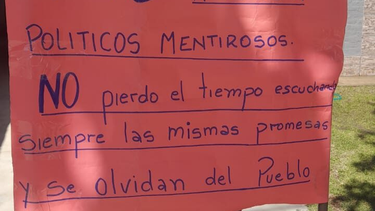 POLITICOS MENTIROSOS.
NO pierdo el tiempo escuchando
siempre las mismas promesas
y se olvidan del Pueblo